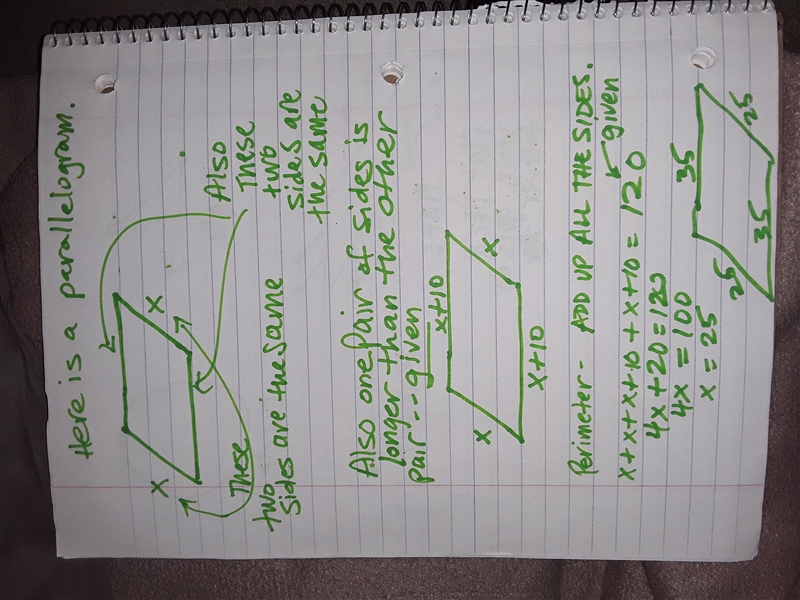 Here is a parallelogram.
x
x
Also
These
two
sides are
the same
These
two
sides are the same
Also one pair of sides is
longer than the other
pair -- given
x+10
x
x
x+10
Perimeter - ADD UP ALL THE SIDES.
x+x+x+10+x+10=120 given
4x+20=120
4x=100
x=25
35
25
25
35